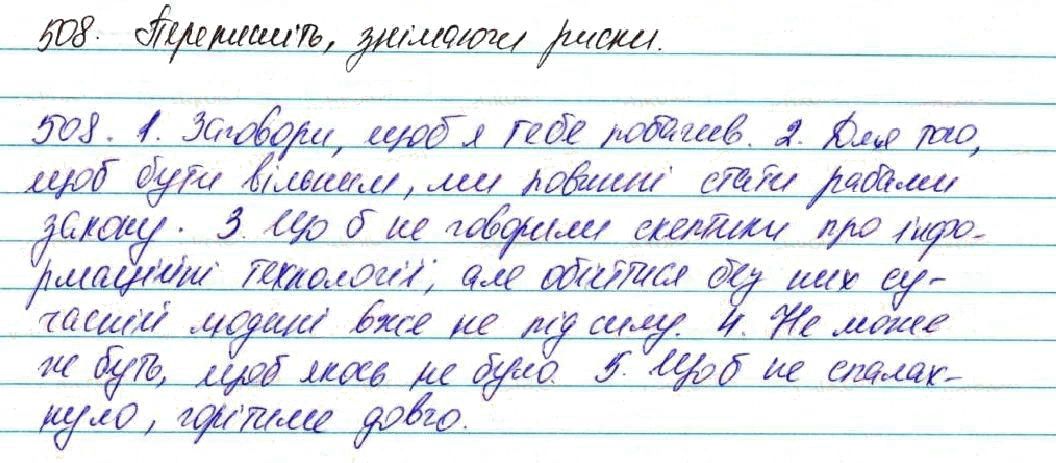 508. Перепишіть, знімаючи риски.
508. 1. Заговори, щоб я тебе побачив. 2. Для того,
щоб бути вільним, ми повинні стати рабами
закону. 3. Що б не говорили скептики про інфо-
рмаційні технології, але обійтися без них су-
часній людині вже не під силу. 4. Не може
не буть, щоб якось не було. 5. Що б не спалах-
нуло, горітиме довго.